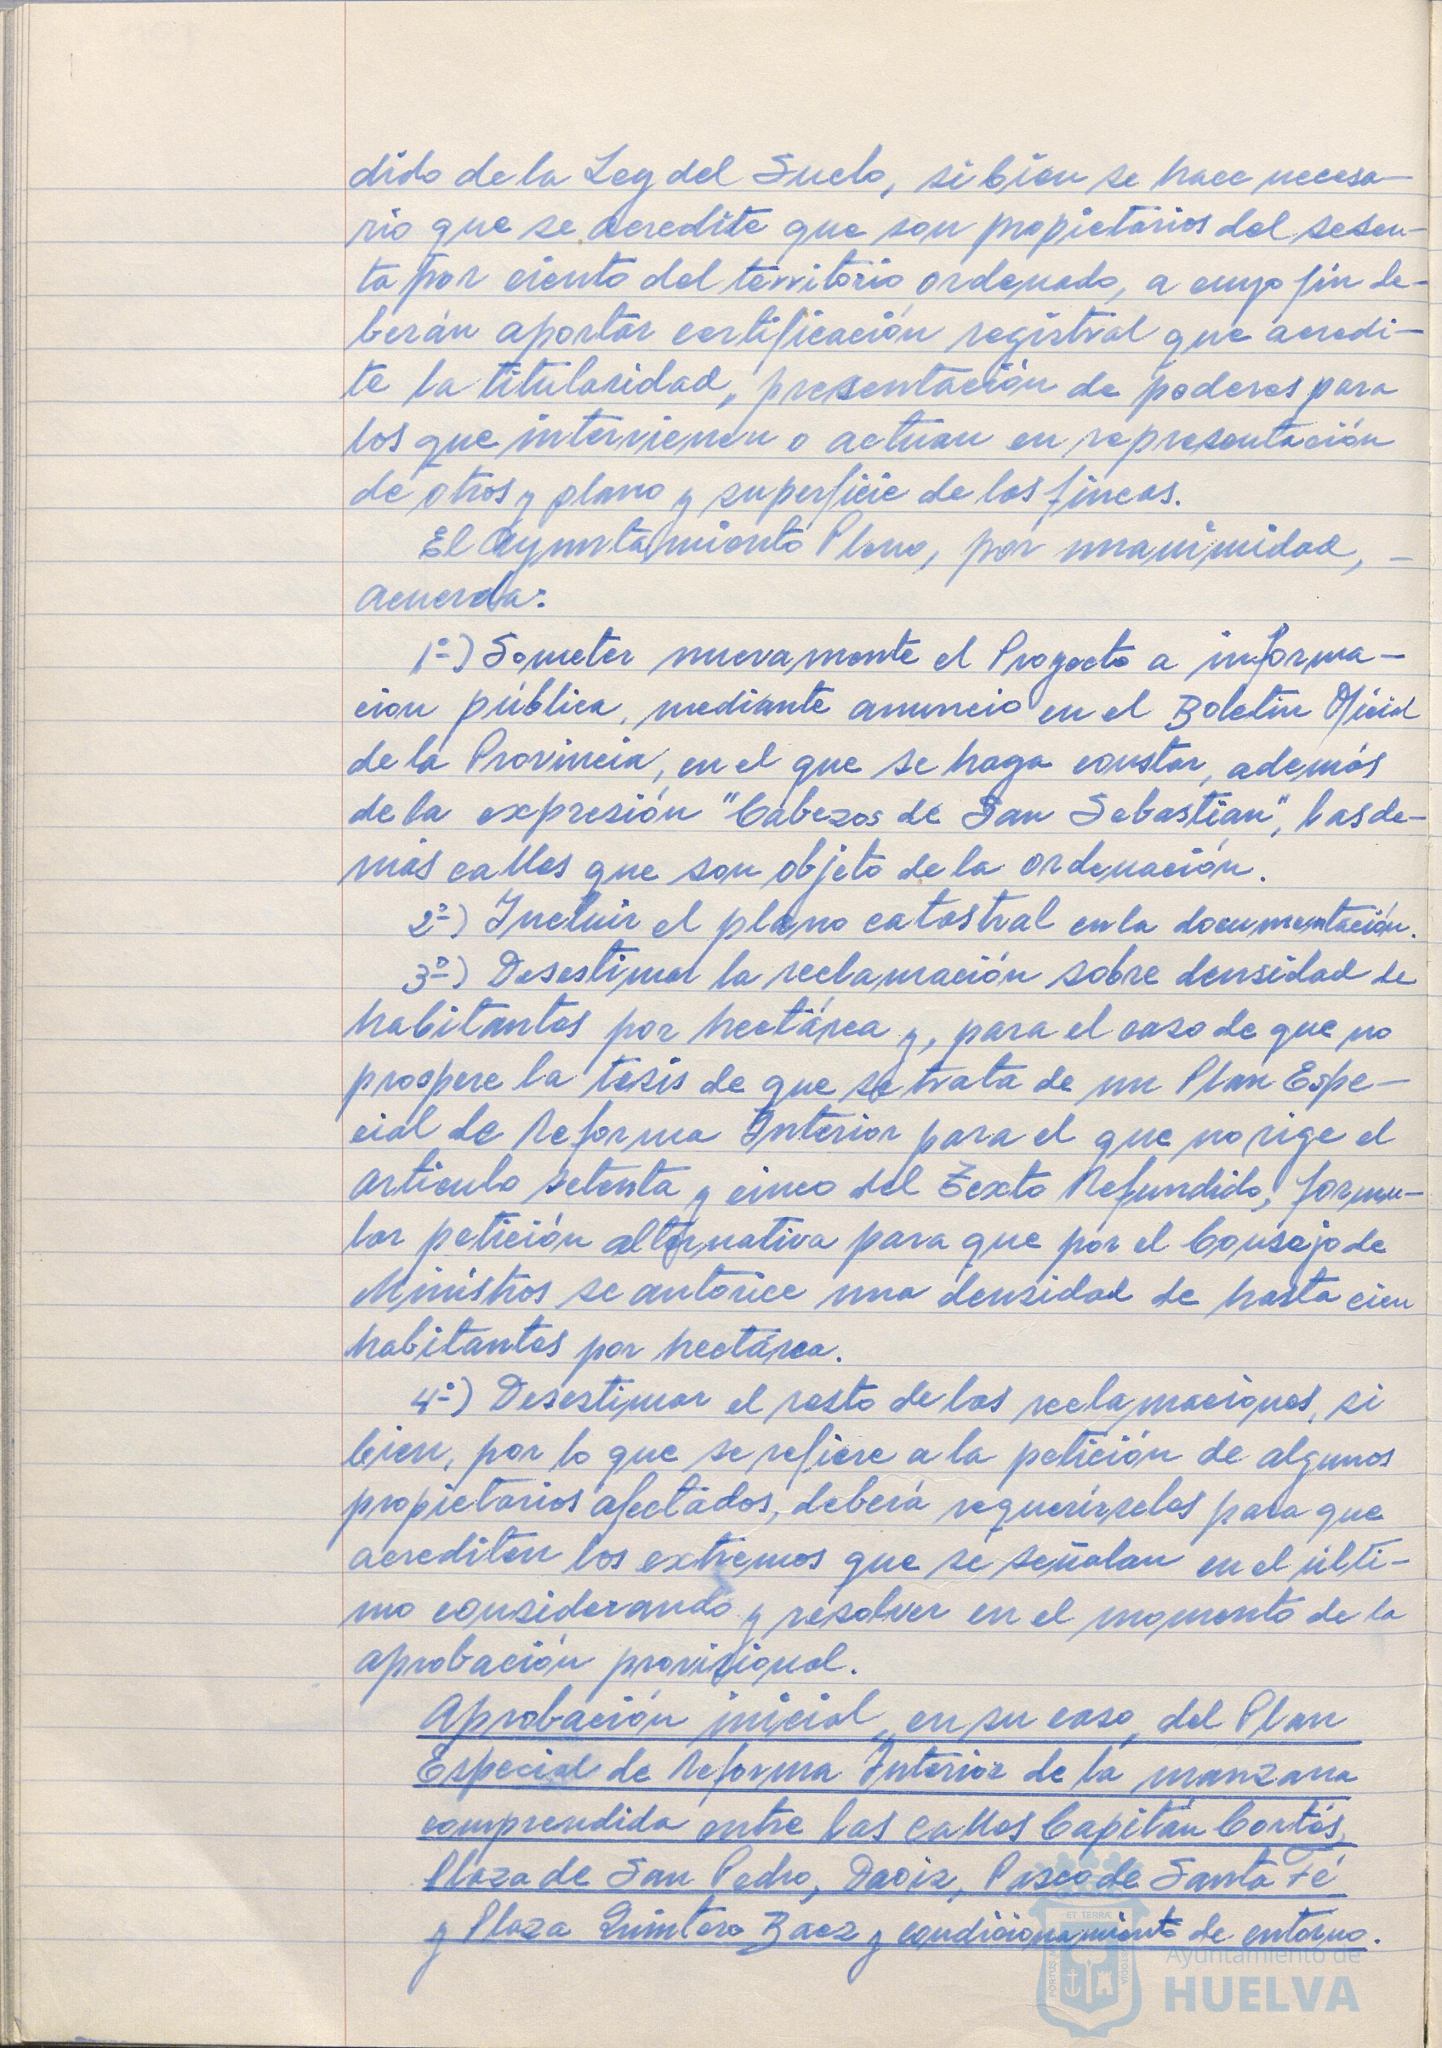 dido de la Ley del Suelo, si bien se hace necesa-
rio que se acredite que son propietarios del sesen-
ta por ciento del territorio ordenado, a cuyo fin de-
berán aportar certificación registral que acredi-
te la titularidad, presentación de poderes para
los que intervienen o actuan en representación
de otros y plano y superficie de las fincas.
El Ayuntamiento Pleno, por unanimidad, -
acuerda:
1º) Someter nuevamente el Proyecto a informa-
cion pública, mediante anuncio en el Boletin Oficial
de la Provincia, en el que se haga constar, además
de la expresión "Cabezos de San Sebastian", las de-
más calles que son objeto de la ordenación.
2º) Incluir el plano catastral en la documentación.
3º) Desestimar la reclamación sobre densidad de
habitantes por hectárea y, para el caso de que no
prospere la tesis de que se trata de un Plan Espe-
cial de Reforma Interior para el que no rige el
articulo setenta y cinco del Texto Refundido, formu-
lar petición alternativa para que por el Consejo de
Ministros se autorice una densidad de hasta cien
habitantes por hectárea.
4º) Desestimar el resto de las reclamaciones, si
bien, por lo que se refiere a la petición de algunos
propietarios afectados, deberá requerírseles para que
acrediten los extremos que se señalan en el últi-
mo considerando y resolver en el momento de la
aprobación provisional.
Aprobación inicial, en su caso, del Plan
Especial de Reforma Interior de la manzana
comprendida entre las calles Capitán Cortés,
Plaza de San Pedro, Daoiz, Paseo de Santa Fé
y Plaza Quintero Baez y condicionamiento de entorno.
ET TERRÆ
Ayuntamiento de
HUELVA